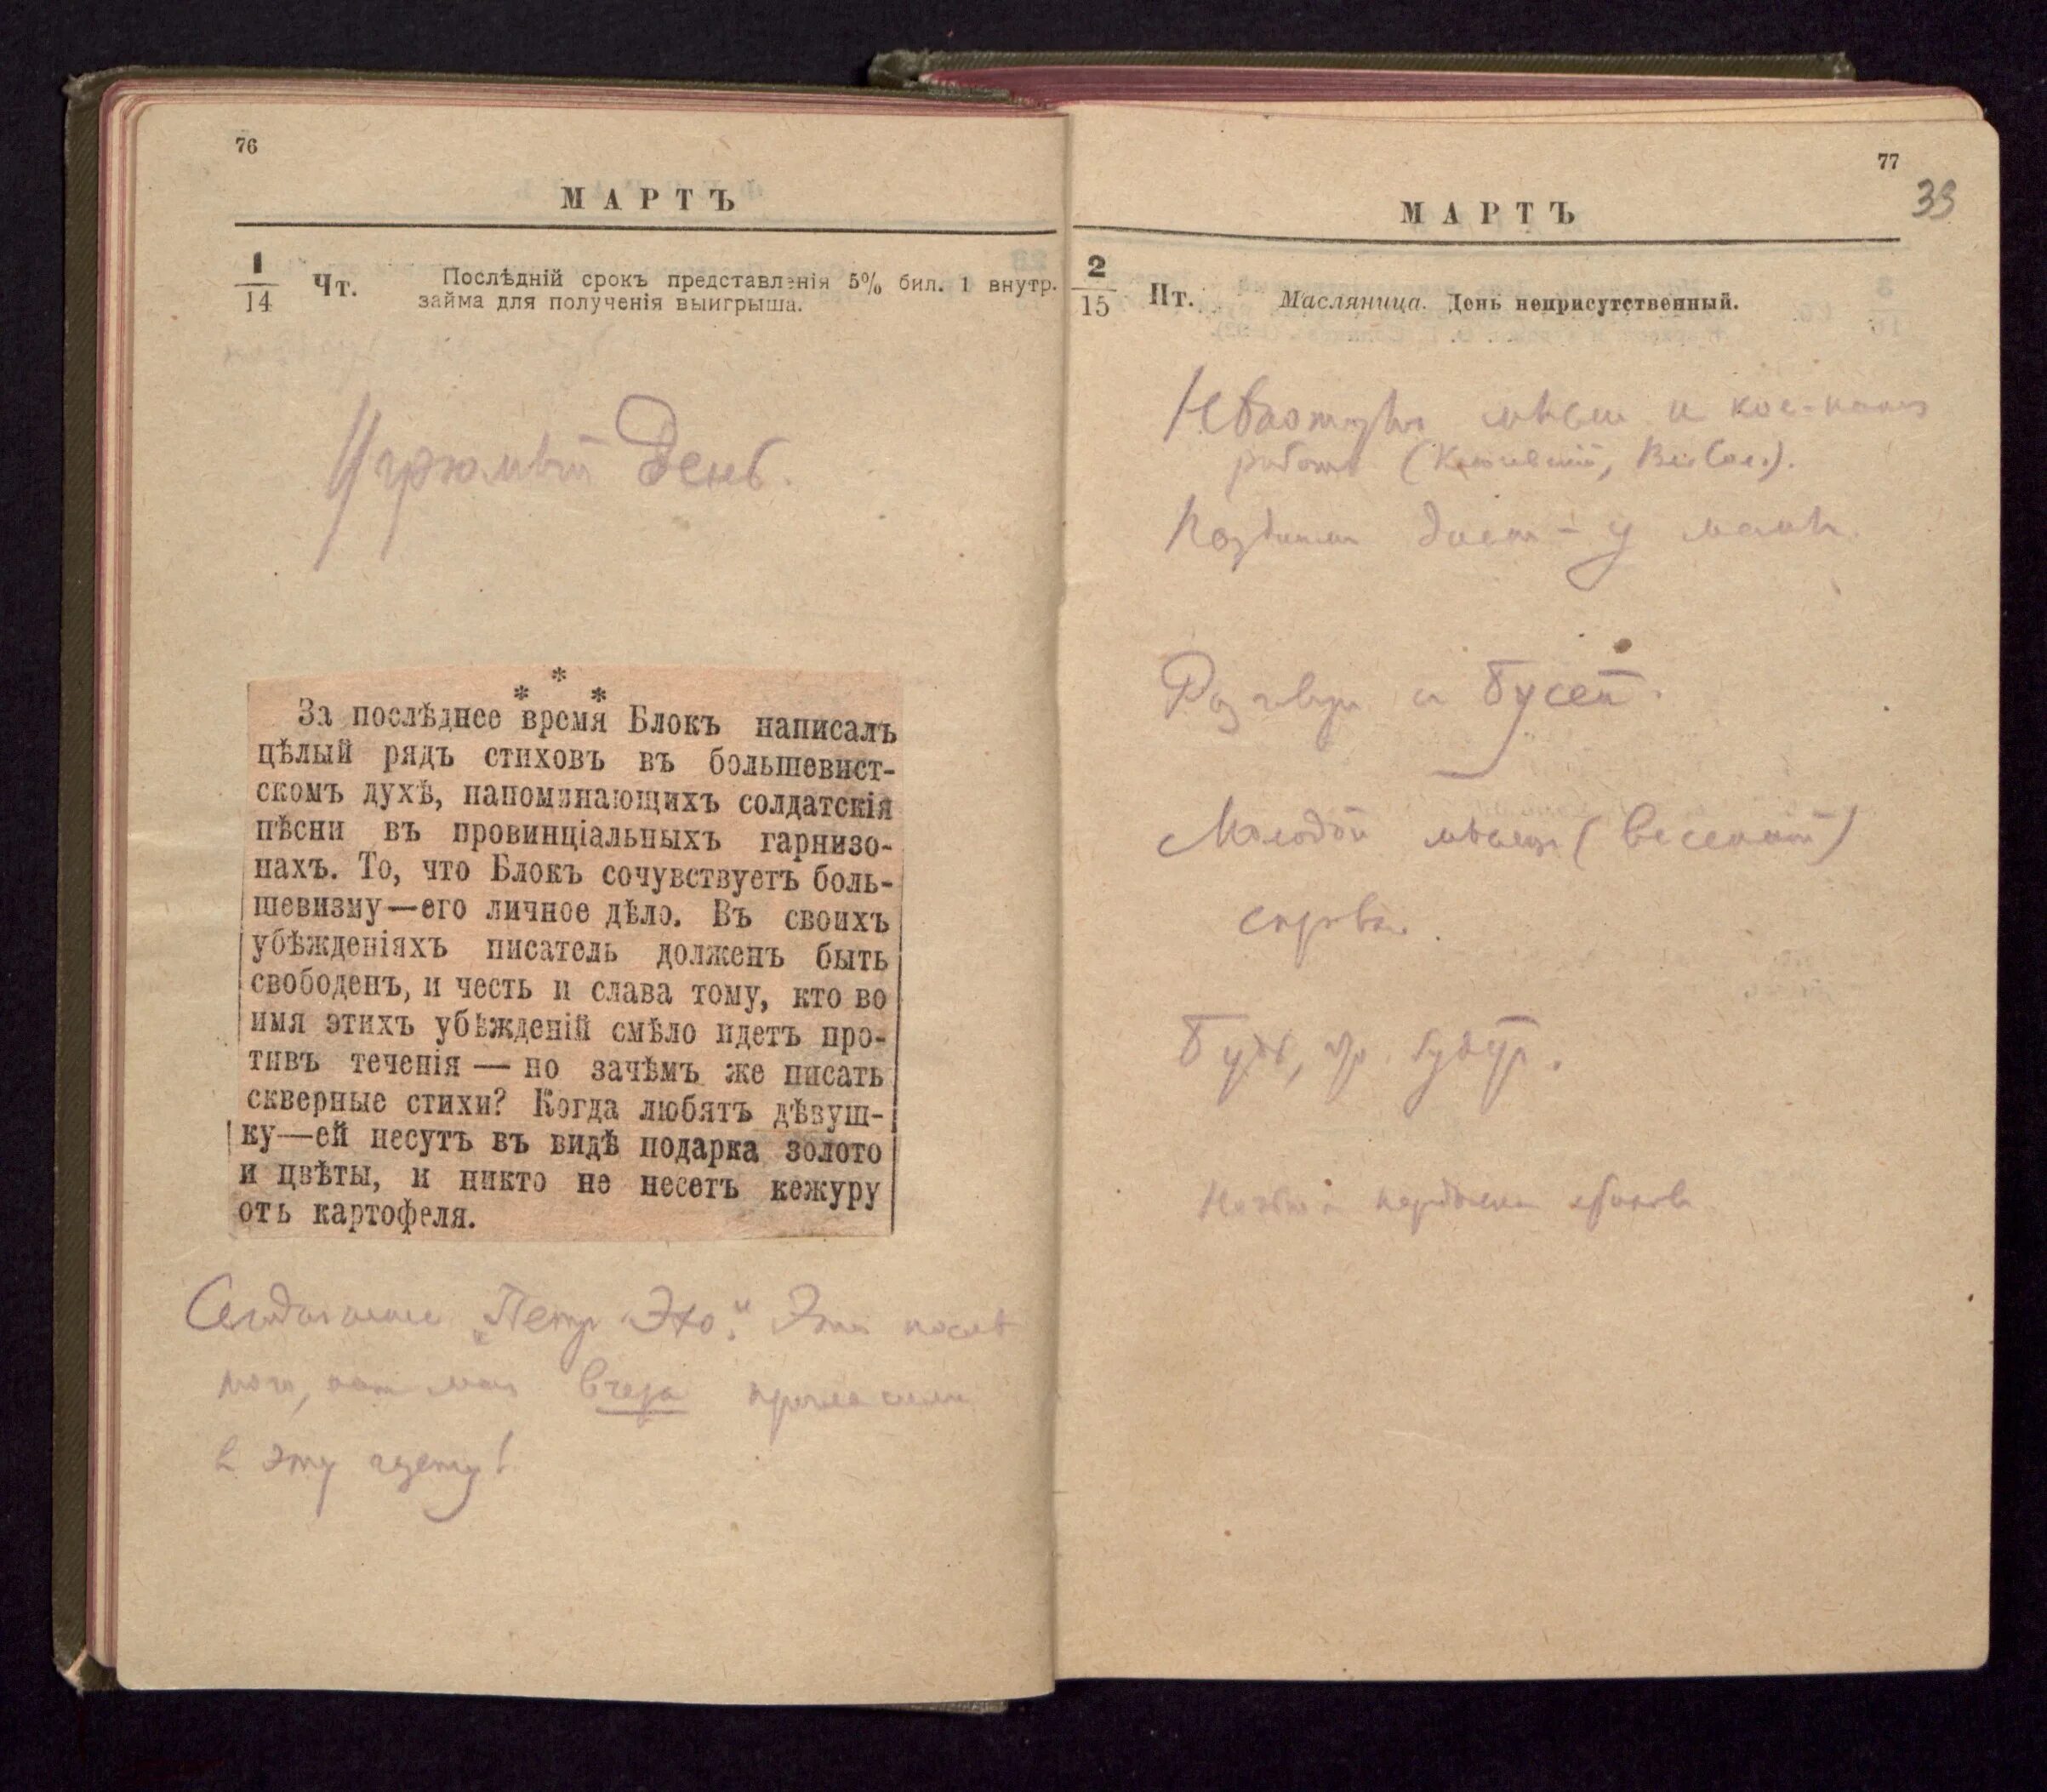 76
МАРТЪ
1
14
Чт.
Послѣдній срокъ представленія 5% бил. 1 внутр.
займа для полученія выигрыша.
Угрюмый день.
*
* *
За послѣднее время Блокъ написалъ
цѣлый рядъ стиховъ въ большевист-
скомъ духѣ, напоминающихъ солдатскія
пѣсни въ провинціальныхъ гарнизо-
нахъ. То, что Блокъ сочувствуетъ боль-
шевизму—его личное дѣло. Въ своихъ
убѣжденіяхъ писатель долженъ быть
свободенъ, и честь и слава тому, кто во
имя этихъ убѣжденій смѣло идетъ про-
тивъ теченія — но зачѣмъ же писать
скверные стихи? Когда любятъ дѣвуш-
ку—ей несутъ въ видѣ подарка золото
и цвѣты, и никто не несетъ кежуру
отъ картофеля.
"Петр. Эхо". Это послѣ
того, как меня вчера пригласили
в эту газету!
77
33
МАРТЪ
2
15
Пт.
Масляница. День неприсутственный.
мысли и кое-какая
работа
у мамы.
Разговор с Бусей.
Молодой мѣсяц (весенний)
справа.